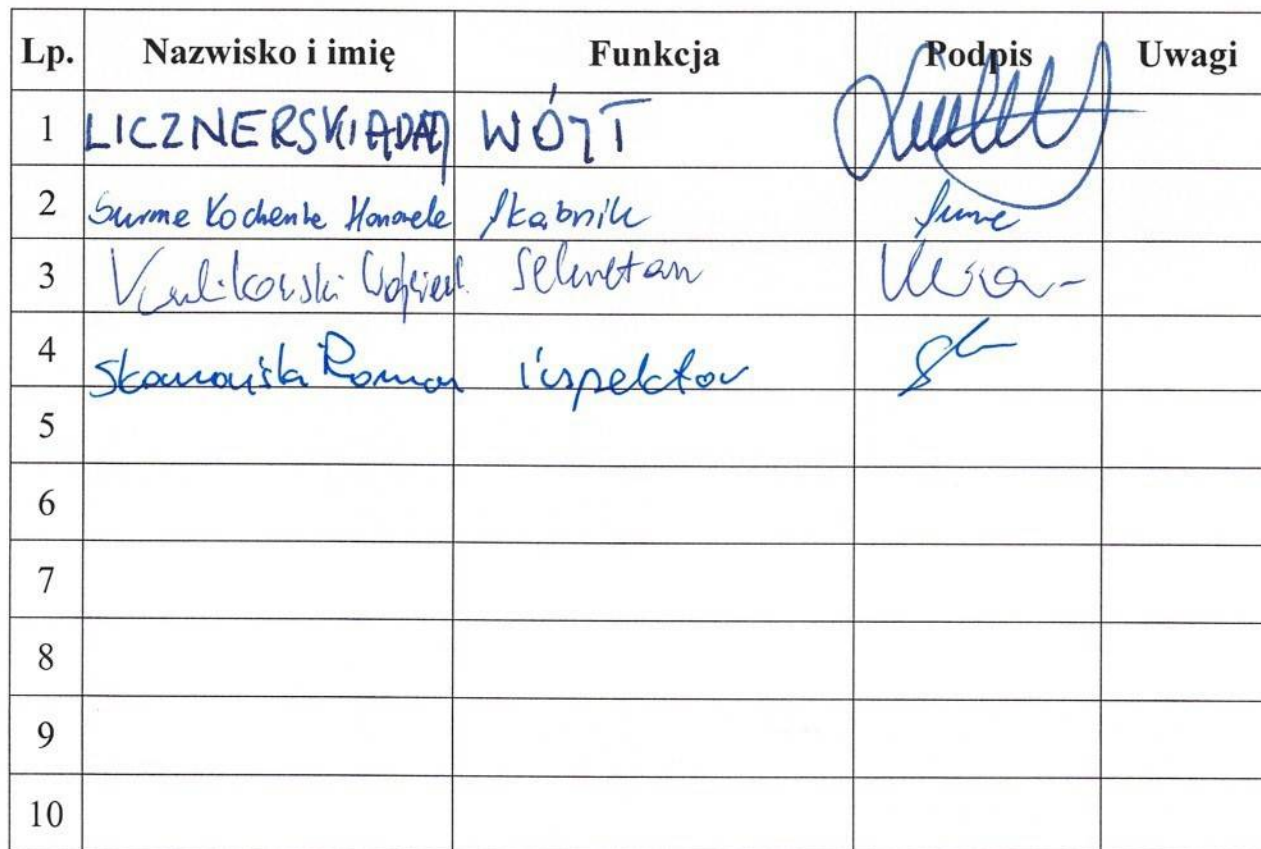 Lp. Nazwisko i imię Funkcja Podpis Uwagi
1 LICZNERSKI ADAM WÓJT
2 Surma Kochenke Skarbnik
3 Wojciech Sekretarz
4 Roman inspektor
5
6
7
8
9
10